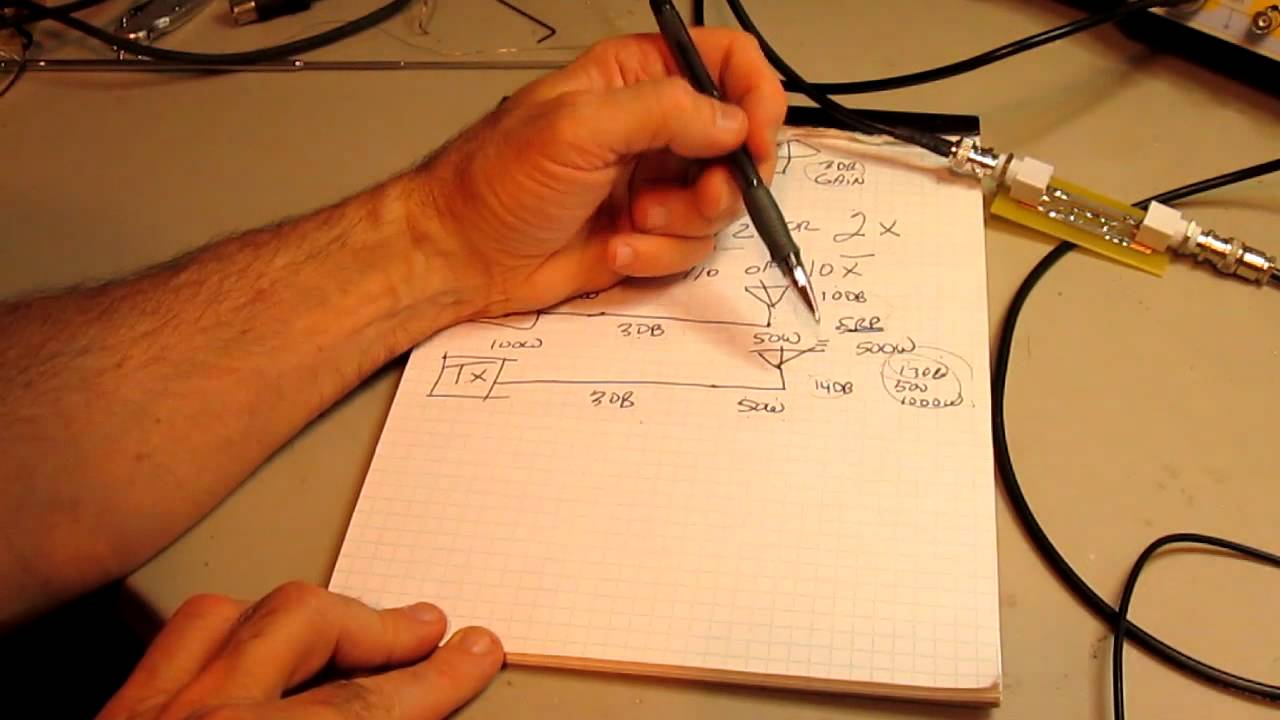 3DB
GAIN
2 OR 2 X
1/10 OR 10 X
10DB
3DB
ERP
100W
50W = 500W
TX
14DB
13DB
500
1000W
3DB
50W